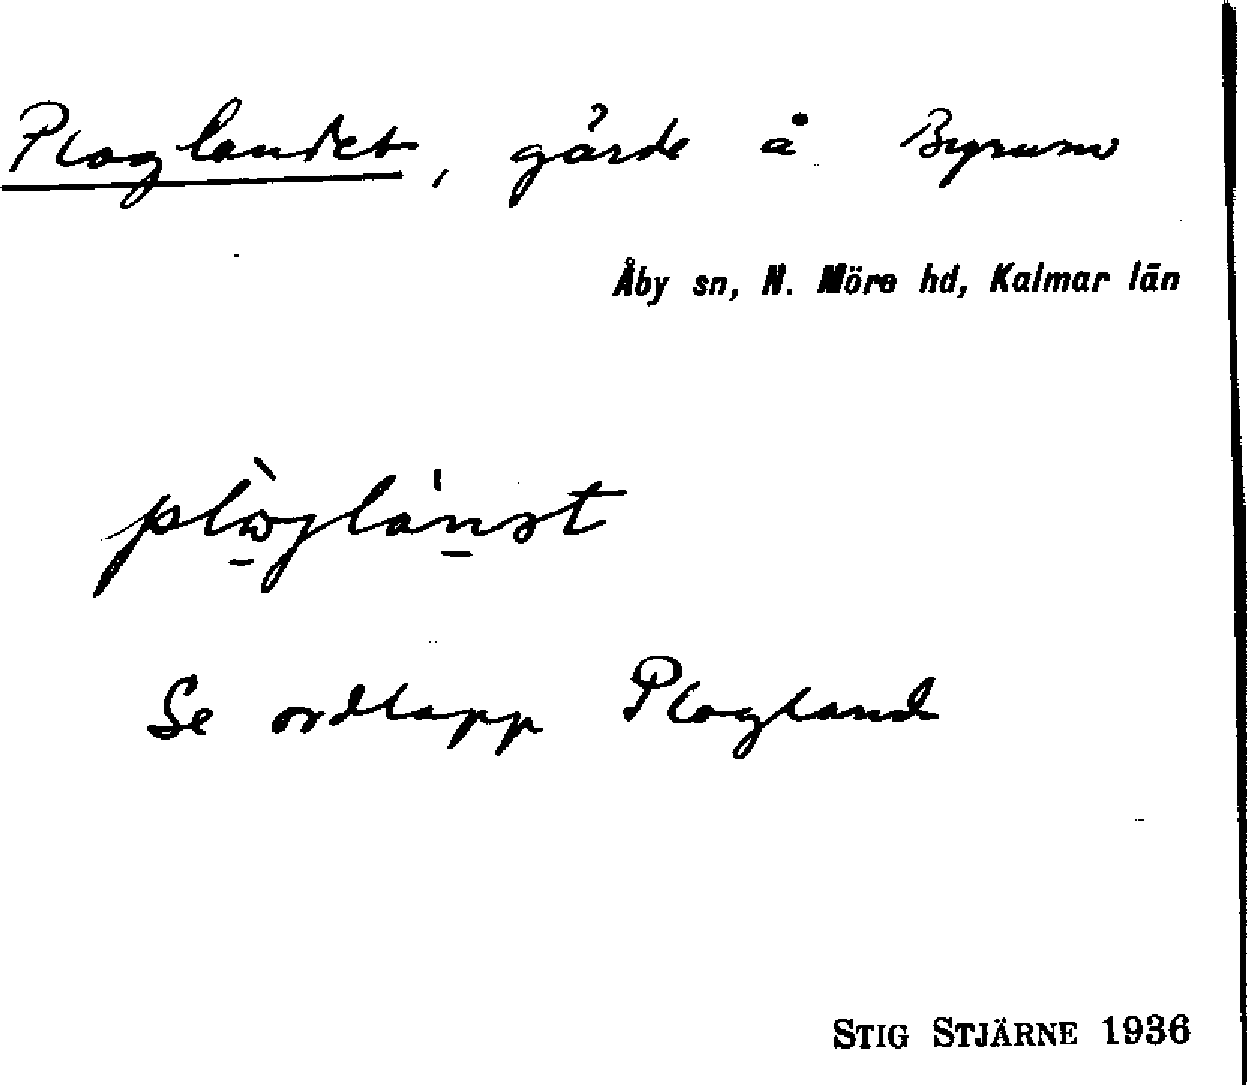 Ploglandet, gärde å Byrum
Åby sn, N. Möre hd, Kalmar län
Se ordlapp Plogland
STIG STJÄRNE 1936